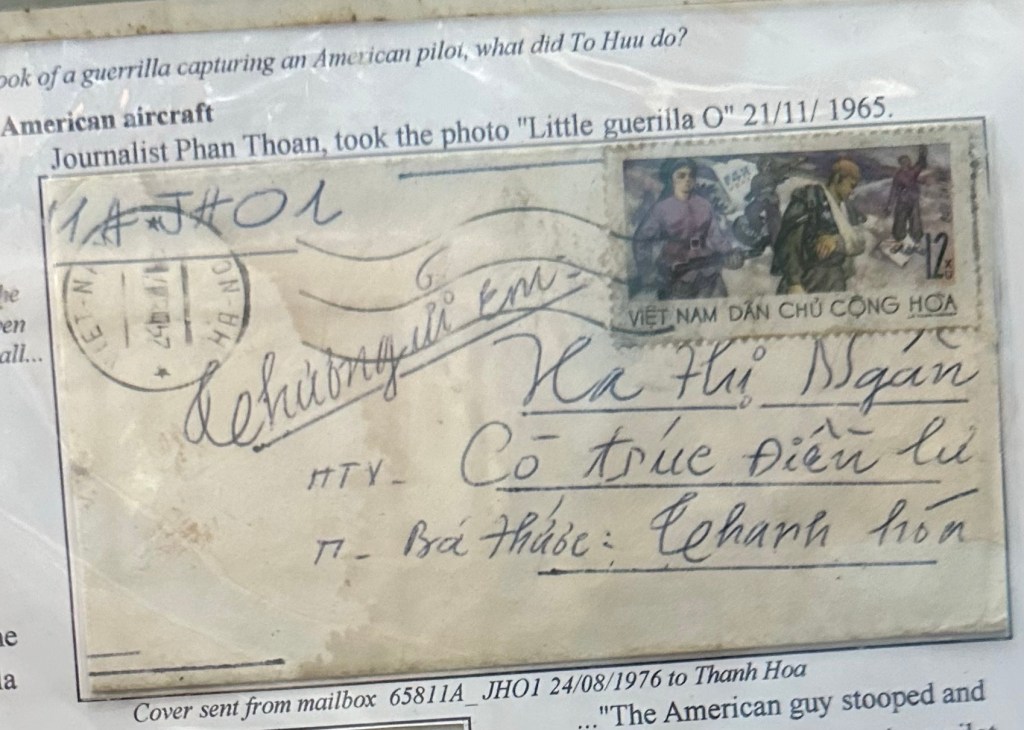 ook of a guerrilla capturing an American pilot, what did To Huu do?
American aircraft
Journalist Phan Thoan, took the photo "Little guerilla O" 21/11/ 1965.
1A JHO1
VIET-NA
HA-NO
12xu
VIỆT NAM DÂN CHỦ CỘNG HÒA
Thương gửi Em:
Ha thị Ngân
HTY - Cô trúc Điền lư
П - Bá thước: Thanh hóa
he
en
all...
ne
la
Cover sent from mailbox 65811A_JHO1 24/08/1976 to Thanh Hoa
..."The American guy stooped and